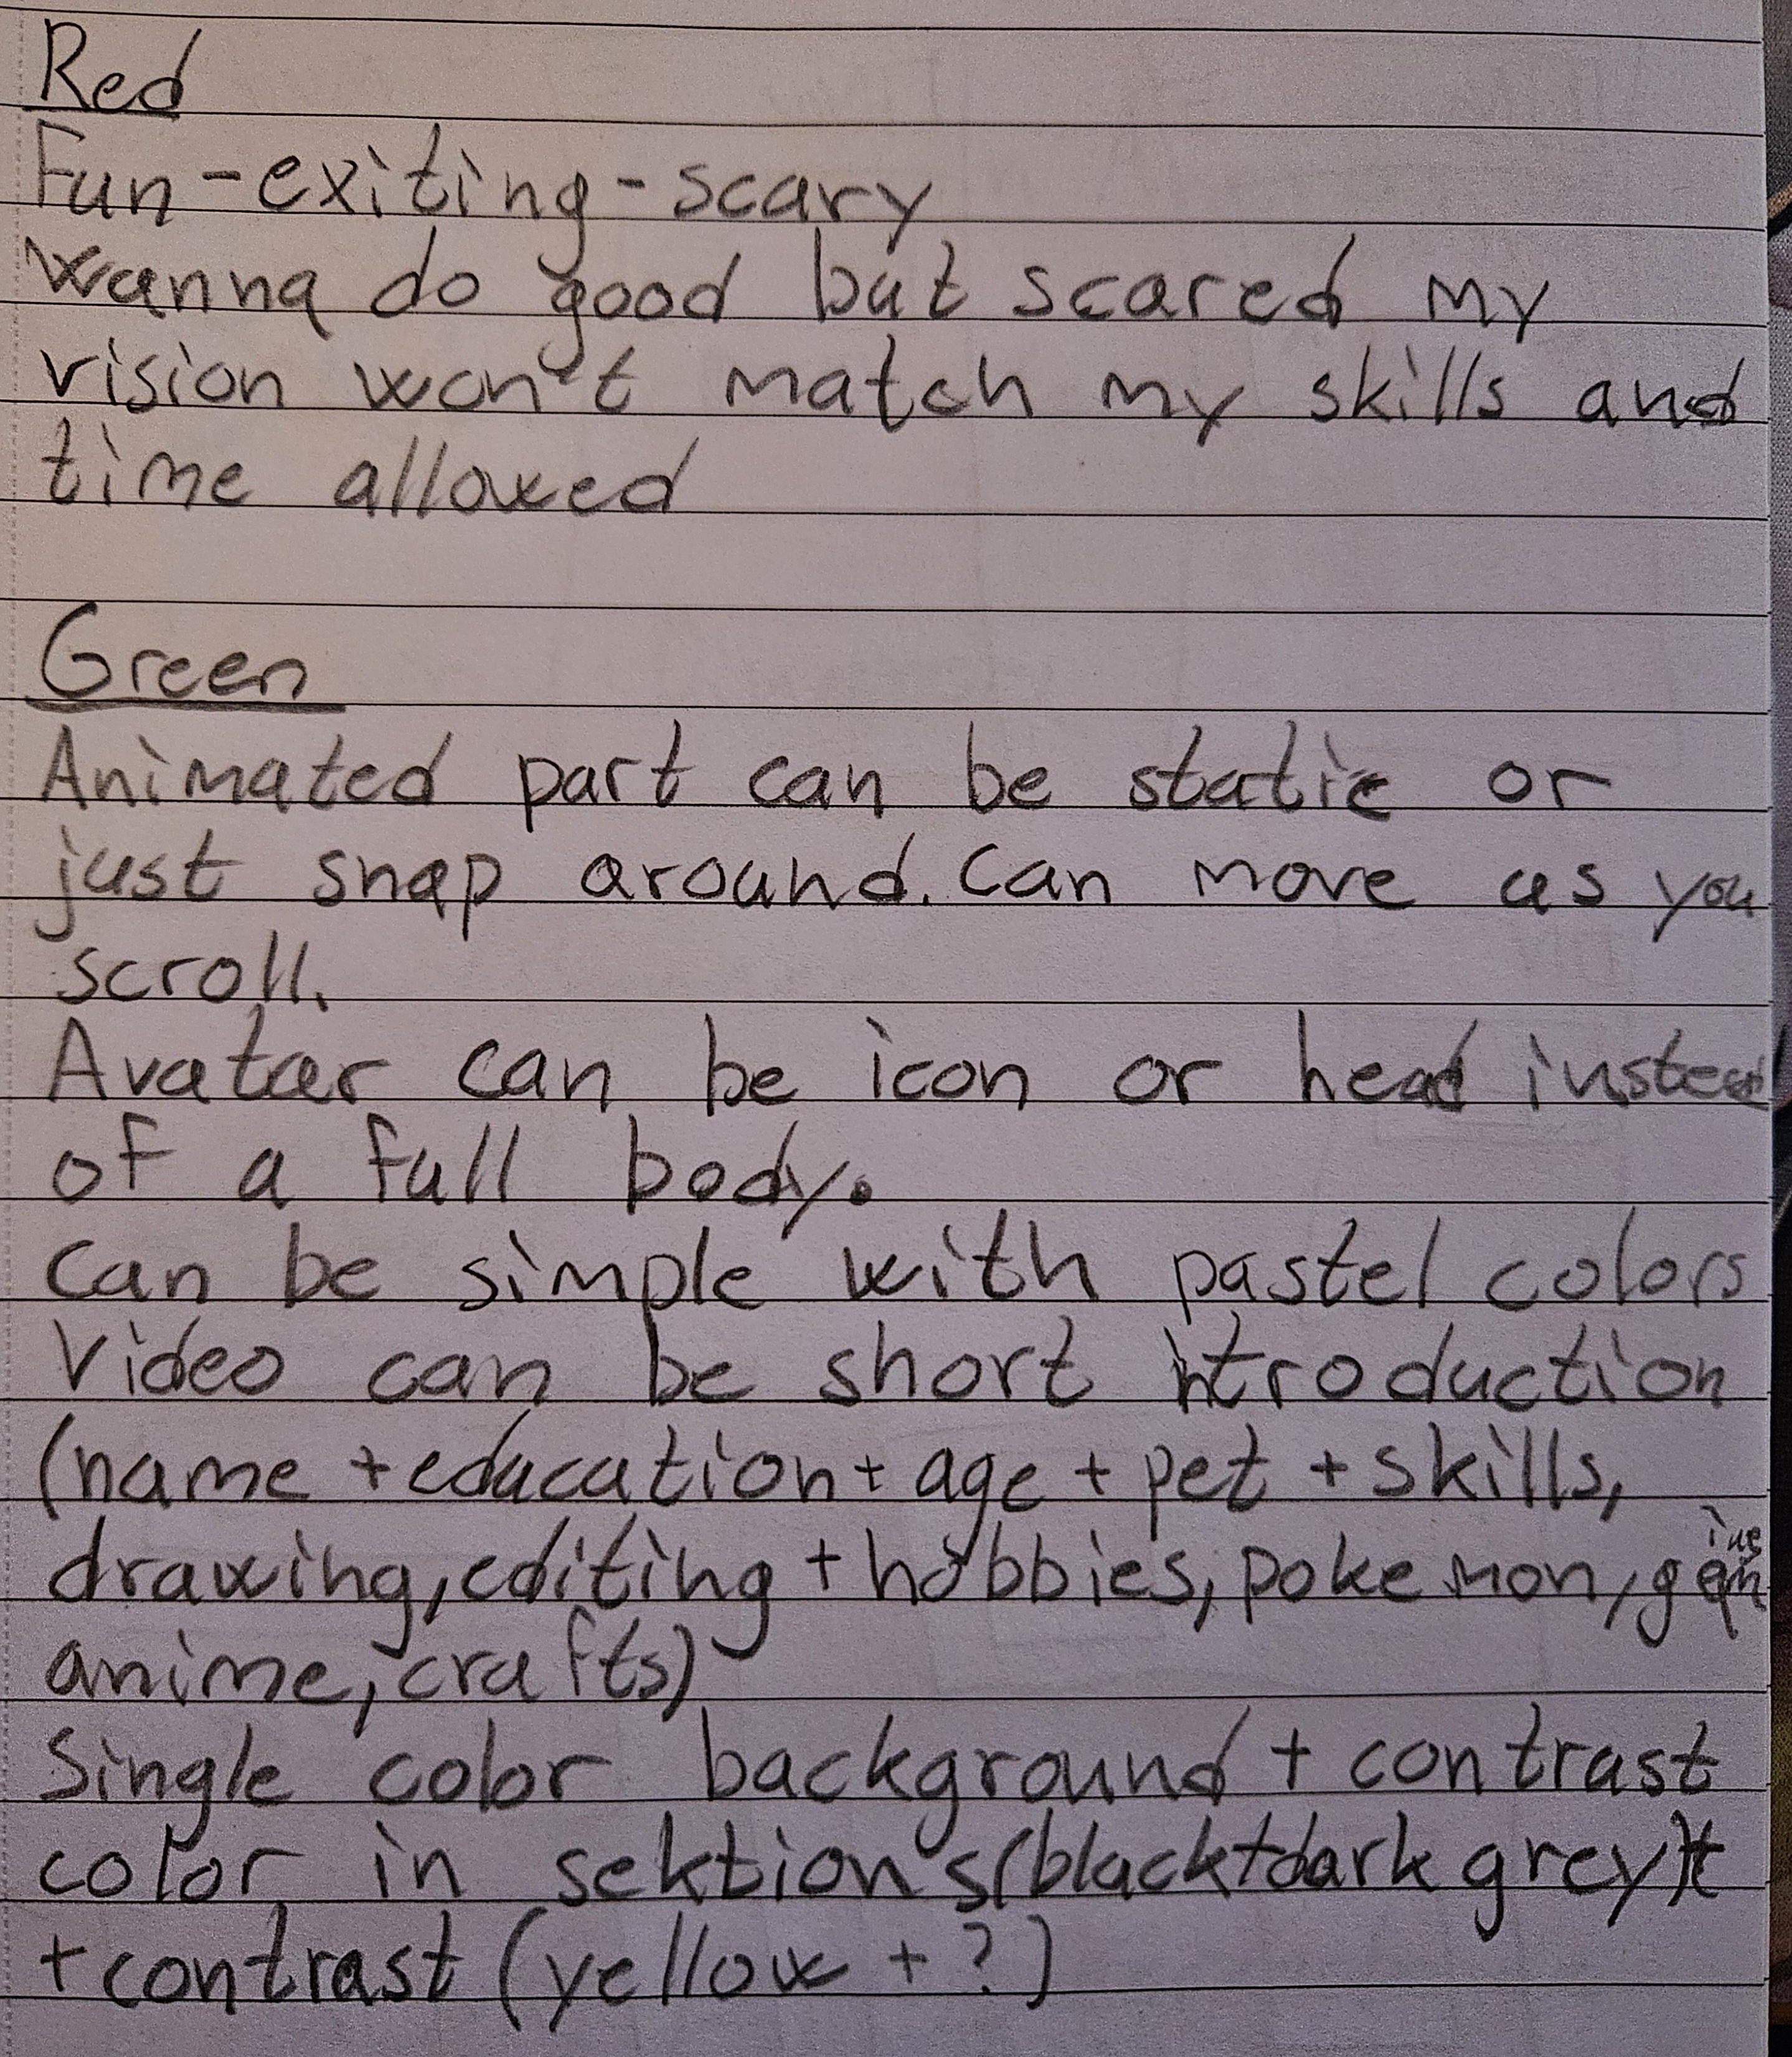 Red
Fun-exiting-scary
wanna do good but scared my
vision won't match my skills and
time allowed
Green
Animated part can be static or
just snap around. Can move as you
scroll.
Avatar can be icon or head instead
of a full body.
Can be simple with pastel colors
Video can be short introduction
(name + education + age + pet + skills,
drawing, editing + hobbies, pokemon,
anime, crafts)
Single color background + contrast
color in sektions (black + dark grey)
+ contrast (yellow + ?)